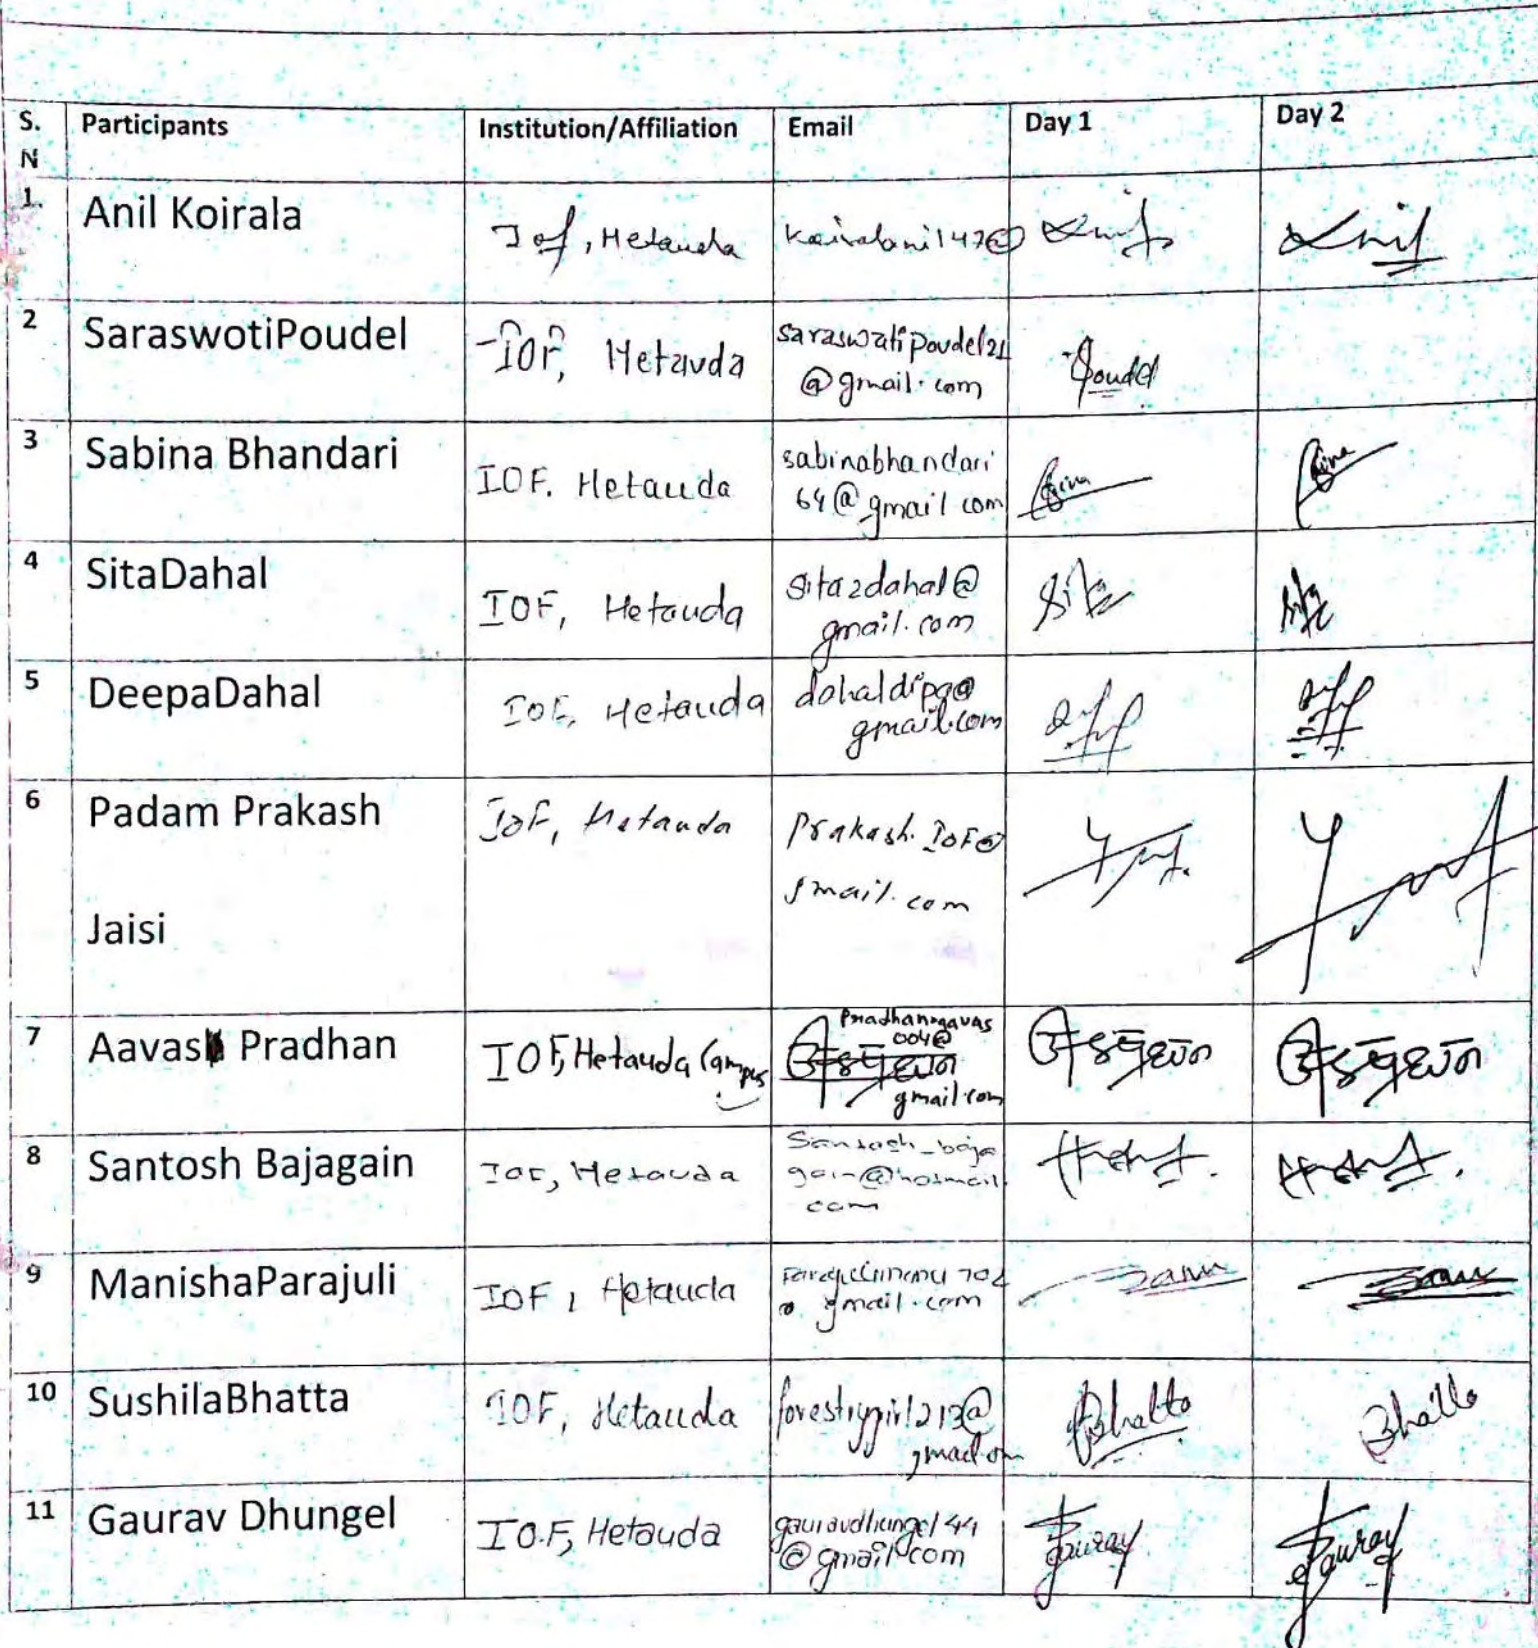 S. N Participants Institution/Affiliation Email Day 1 Day 2
1. Anil Koirala Iof, Hetauda
2 SaraswotiPoudel IOF, Hetauda saraswatipoudel21 Poudel
@gmail.com
3 Sabina Bhandari IOF. Hetauda sabinabhandari
64@gmail com
4 SitaDahal IOF, Hetauda sita2dahal@ Sita
gmail.com
5 DeepaDahal IOF, Hetauda dahaldipa@
gmail.com
6 Padam Prakash IOF, Hetauda Prakash.IOF@
gmail.com
Jaisi
7 Aavas Pradhan IOF, Hetauda Campus
004@
gmail.com
8 Santosh Bajagain IOF, Hetauda Santosh_baja
gain@hotmail
com
9 ManishaParajuli IOF, Hetauda
@ gmail.com
10 SushilaBhatta IOF, Hetauda forestrygirl213@ Bhatta Bhatta
11 Gaurav Dhungel IOF, Hetauda gauravdhungel44 Gaurav Gaurav
@gmail.com